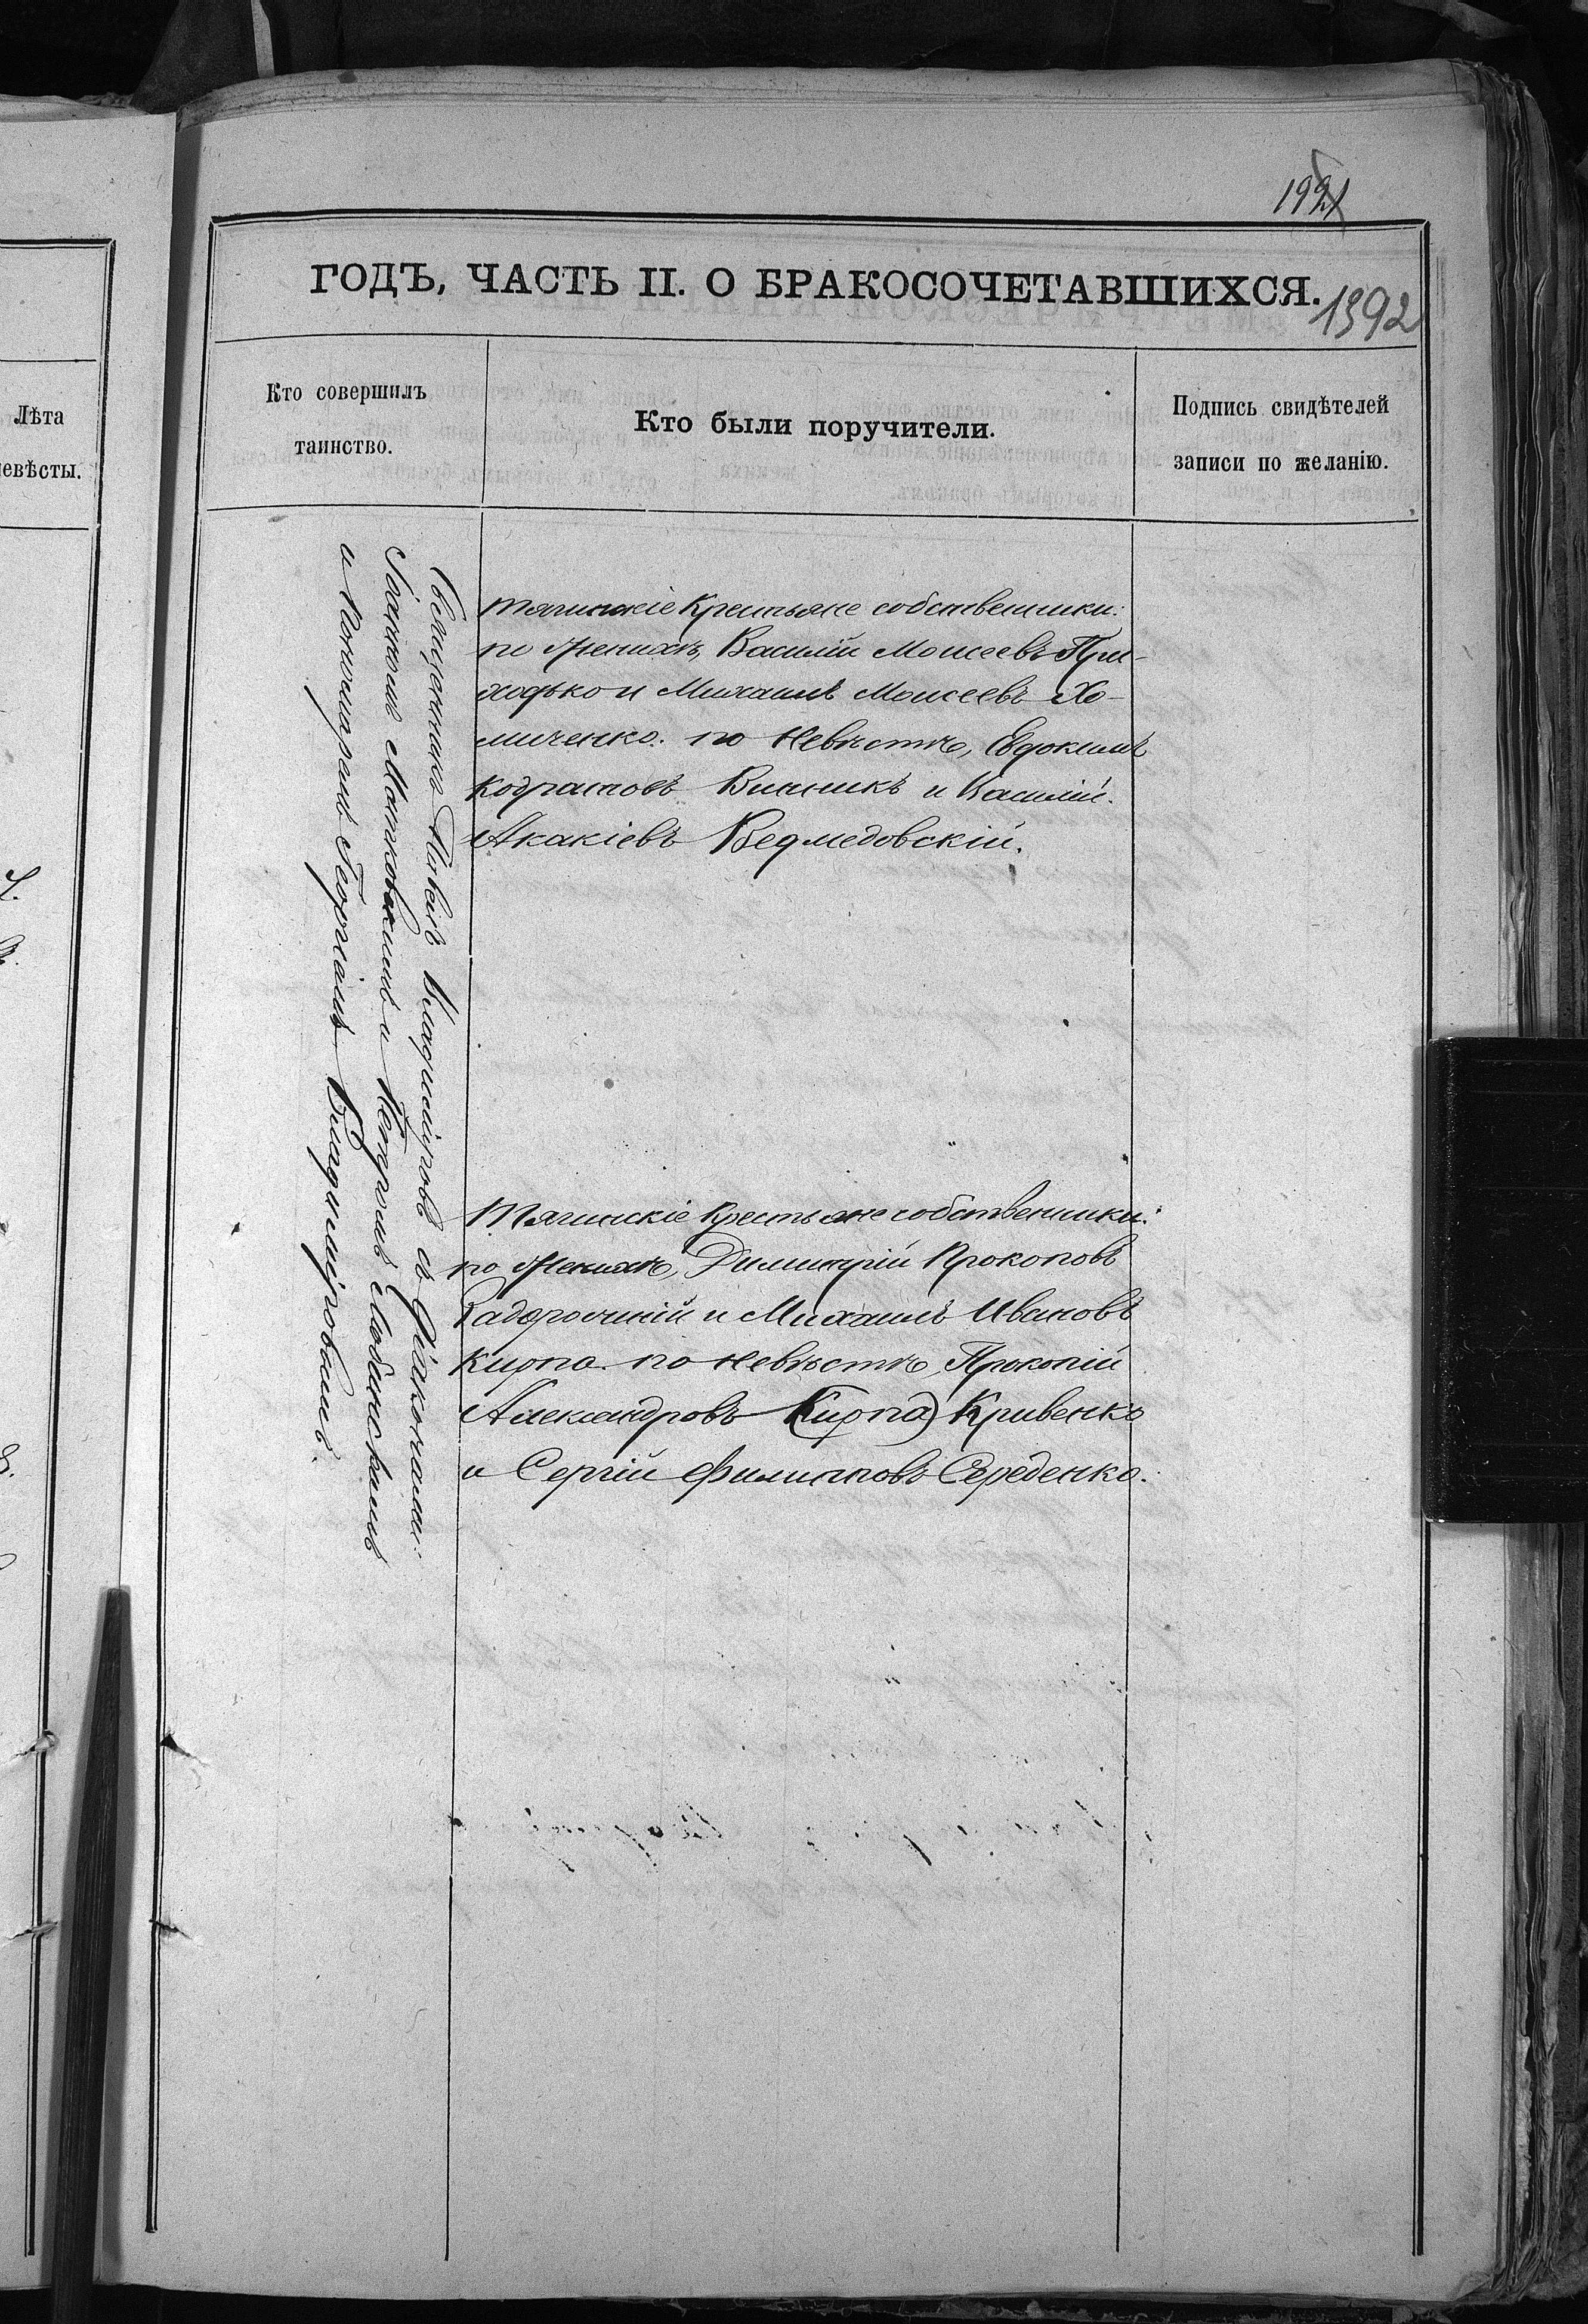 1991
ГОДЪ, ЧАСТЬ II. О БРАКОСОЧЕТАВШИХСЯ.
1392
Лѣта
невѣсты.
Кто совершилъ
таинство.
Кто были поручители.
Подпись свидѣтелей
записи по желанію.
Священникъ Павелъ Владиміровъ съ Діаконами:
Іоанномъ Матковскимъ и Петромъ Любинскимъ
и Пономаремъ Георгіемъ Владиміровымъ.
Тягинскіе крестьяне собственники:
по женихѣ, Василій Моисеевъ При-
ходько и Михаилъ Моисеевъ Хо-
миченко. по невѣстѣ, Евдокимъ
Кодратовъ Винникъ и Василій
Акакіевъ Ведмедовскій.
Тягинскіе крестьяне собственники:
по женихѣ, Димитрій Прокоповъ
Задорожній и Михаилъ Ивановъ
Кирпа. по невѣстѣ, Прокопій
Александровъ (Кирпа) Кривенко
и Сергій Филиповъ Середенко.